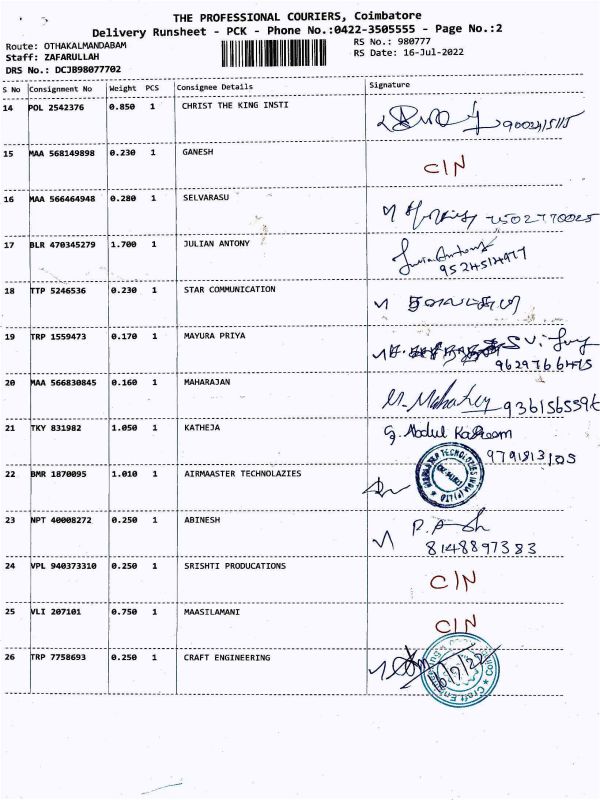 THE PROFESSIONAL COURIERS, Coimbatore
Delivery Runsheet - PCK - Phone No.:0422-3505555 - Page No.:2
Route: OTHAKALMANDABAM RS No.: 980777
Staff: ZAFARULLAH RS Date: 16-Jul-2022
DRS No.: DCJB98077702
S No Consignment No Weight PCS Consignee Details Signature
14 POL 2542376 0.850 1 CHRIST THE KING INSTI
15 MAA 568149898 0.230 1 GANESH C/N
16 MAA 566464948 0.280 1 SELVARASU 7502770025
17 BLR 470345279 1.700 1 JULIAN ANTONY
9524514977
18 TTP 5246536 0.230 1 STAR COMMUNICATION
19 TRP 1559473 0.170 1 MAYURA PRIYA
9629766475
20 MAA 566830845 0.160 1 MAHARAJAN
21 TKY 831982 1.050 1 KATHEJA G. Abdul Kareem
9791813105
22 BMR 1870095 1.010 1 AIRMAASTER TECHNOLAZIES
23 NPT 40008272 0.250 1 ABINESH
8148897383
24 VPL 940373310 0.250 1 SRISHTI PRODUCATIONS C/N
25 VLI 207101 0.750 1 MAASILAMANI C/N
26 TRP 7758693 0.250 1 CRAFT ENGINEERING
16/7/22